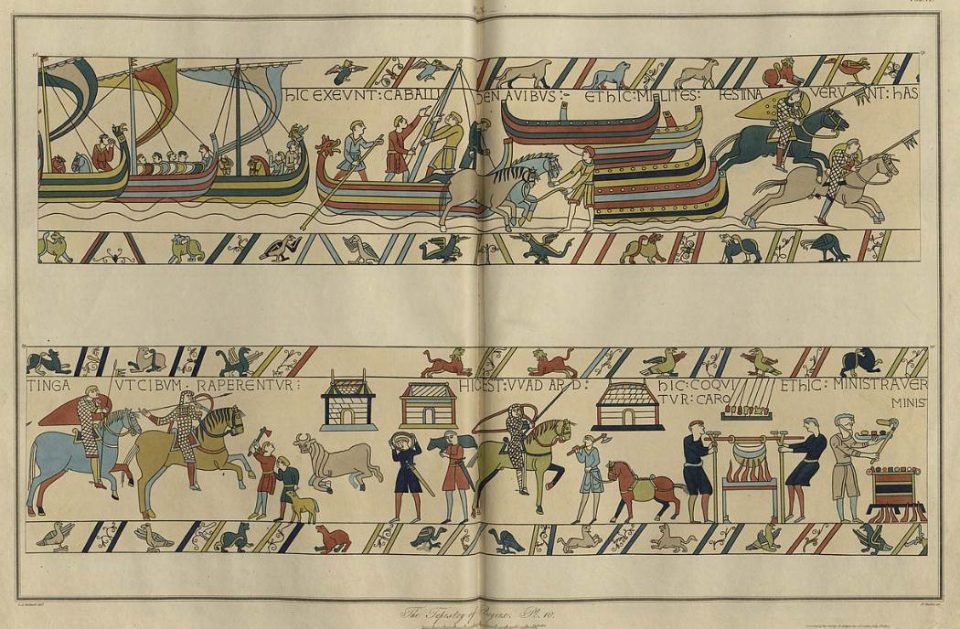 hIC EXEVNT: CABALLI DENAVIBVS:- EThIC: MILITES: FESTINA VERVNT: hAS
TINGA VTCIBVM · RAPERENTVR: HIC EST: VVADARD: hIC: COQVI EThIC: MINISTRAVER
TVR: CARO MINIS
The Tapestry of Bayeux. Pl. 10.